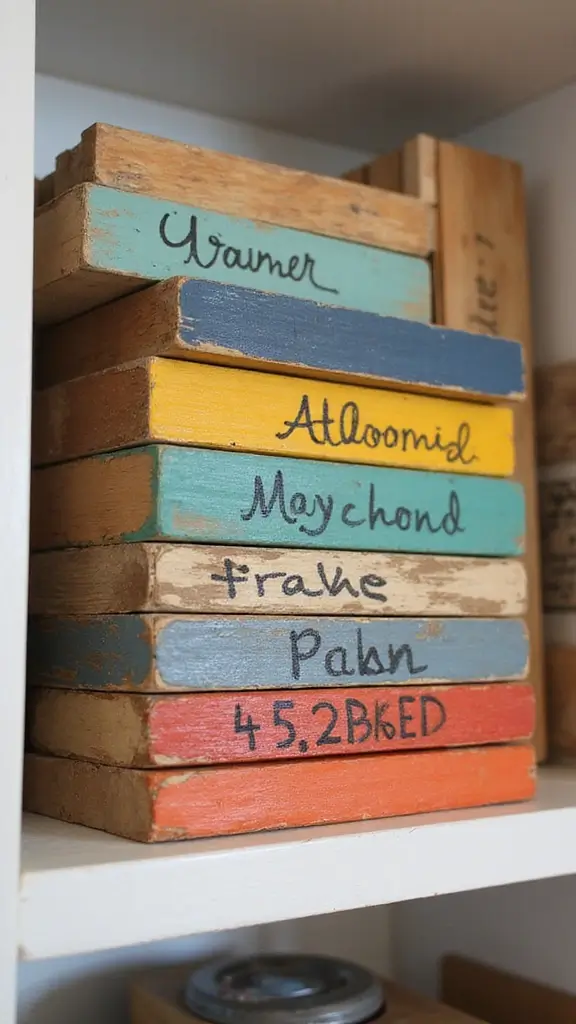 Waumer
AtDoomid
Maychond
Frake
Pabn
45.2BKED